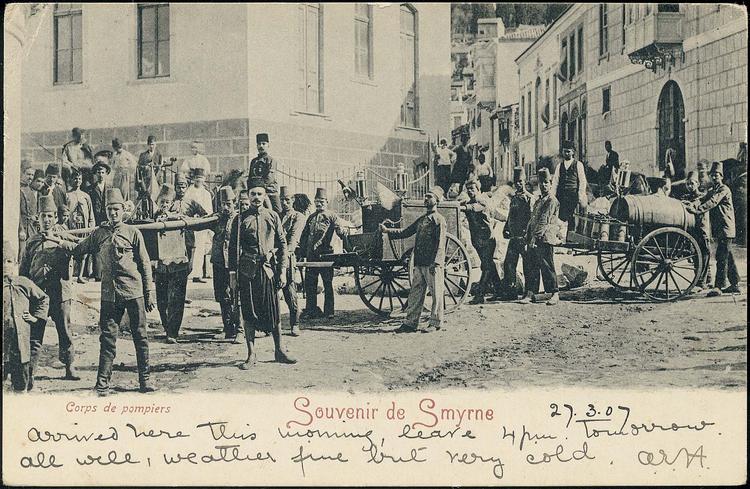 Corps de pompiers
Souvenir de Smyrne
27.3.07
Arrived here this morning, leave 4pm. Tomorrow.
all well, weather fine but very cold.